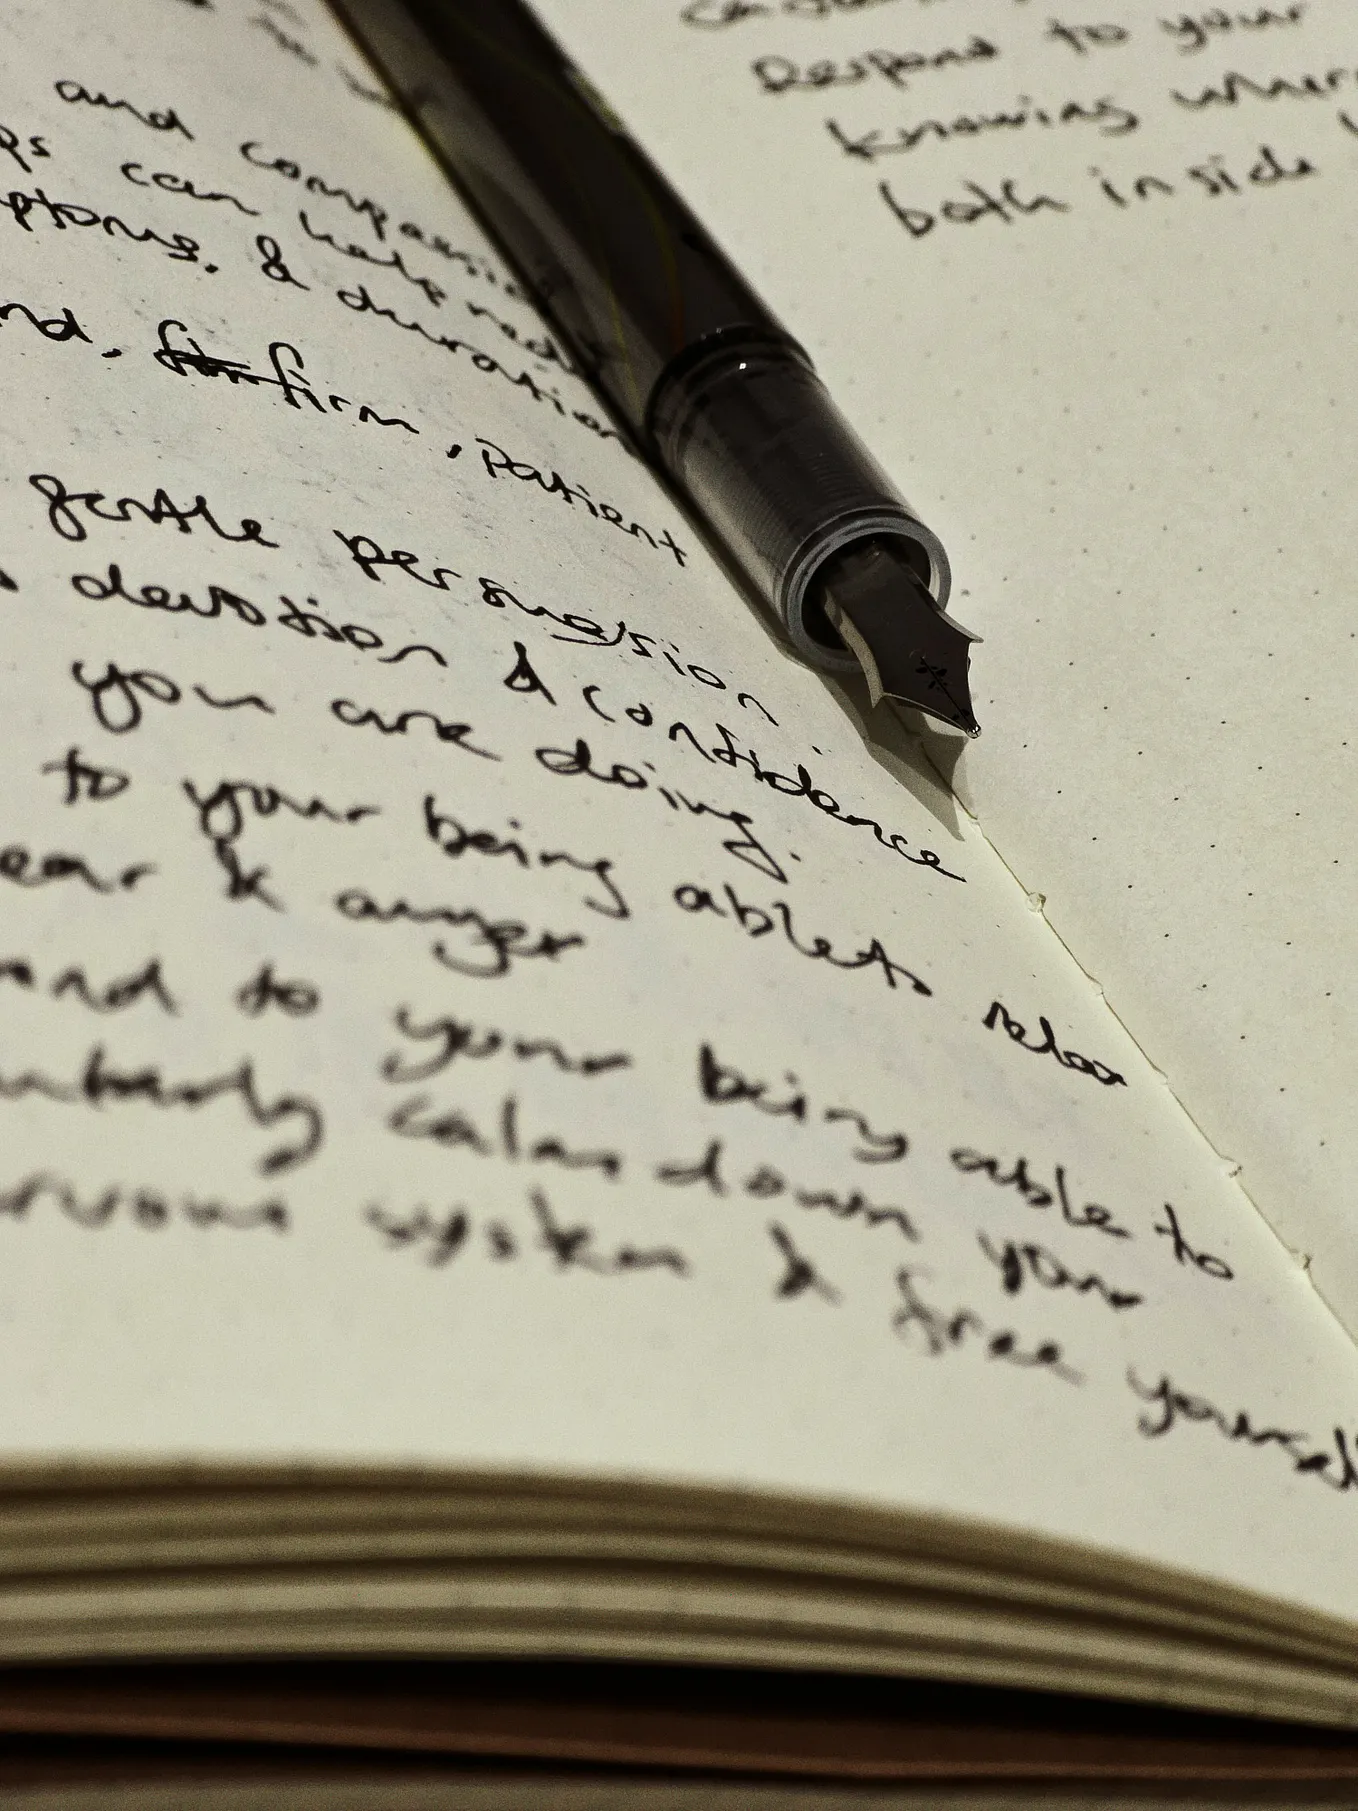 and compassion
can help reduc
& duration
firm, Patient
gentle persuasion
devotion & confidence
you are doing.
to your being able to relax
& anger
to your being able to
calm down your
system & free yourself
Respond to your
knowing
both inside